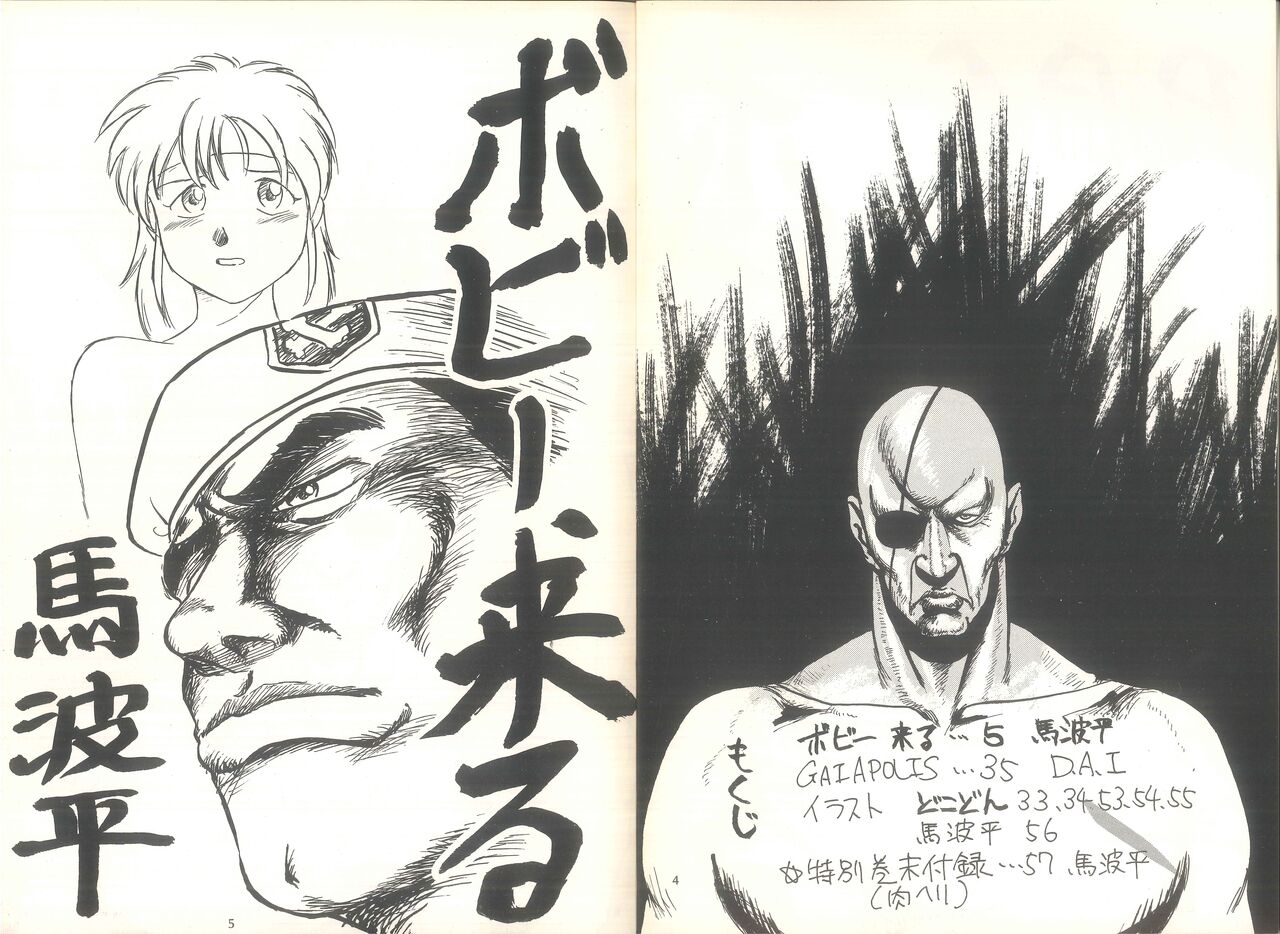 もくじ
ボビー来る…5 馬波平
GAIAPOLIS…35 D.A.I
イラスト どこどん 33.34.53.54.55
馬波平 56
☆特別巻末付録…57 馬波平
(肉ヘリ)
4
ボビー来る
馬波平
5